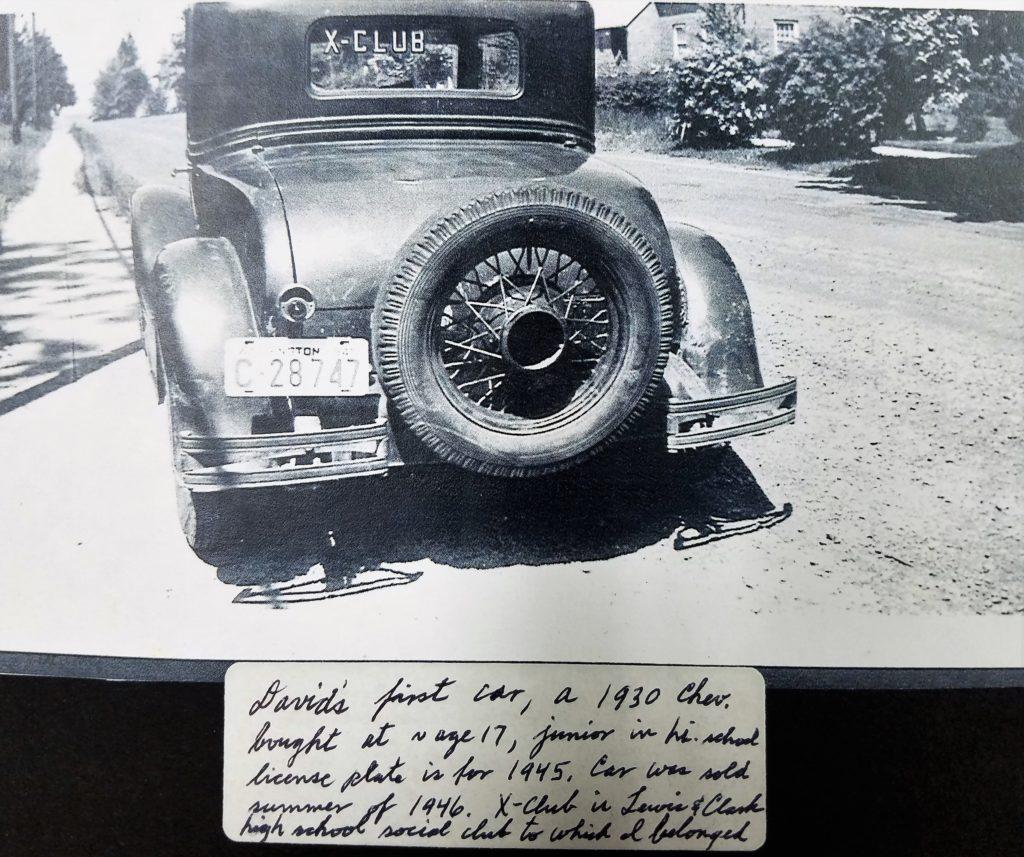 X-CLUB
C-28747
David's first car, a 1930 Chev.
bought at ~ age 17, junior in hi-school
license plate is for 1945. Car was sold
summer of 1946. X-Club is Lewis & Clark
high school social club to which I belonged